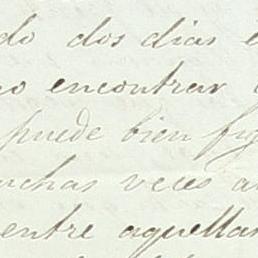 do dos dias
encontrar
puede bien fig
uchas veces a
entre aquellas